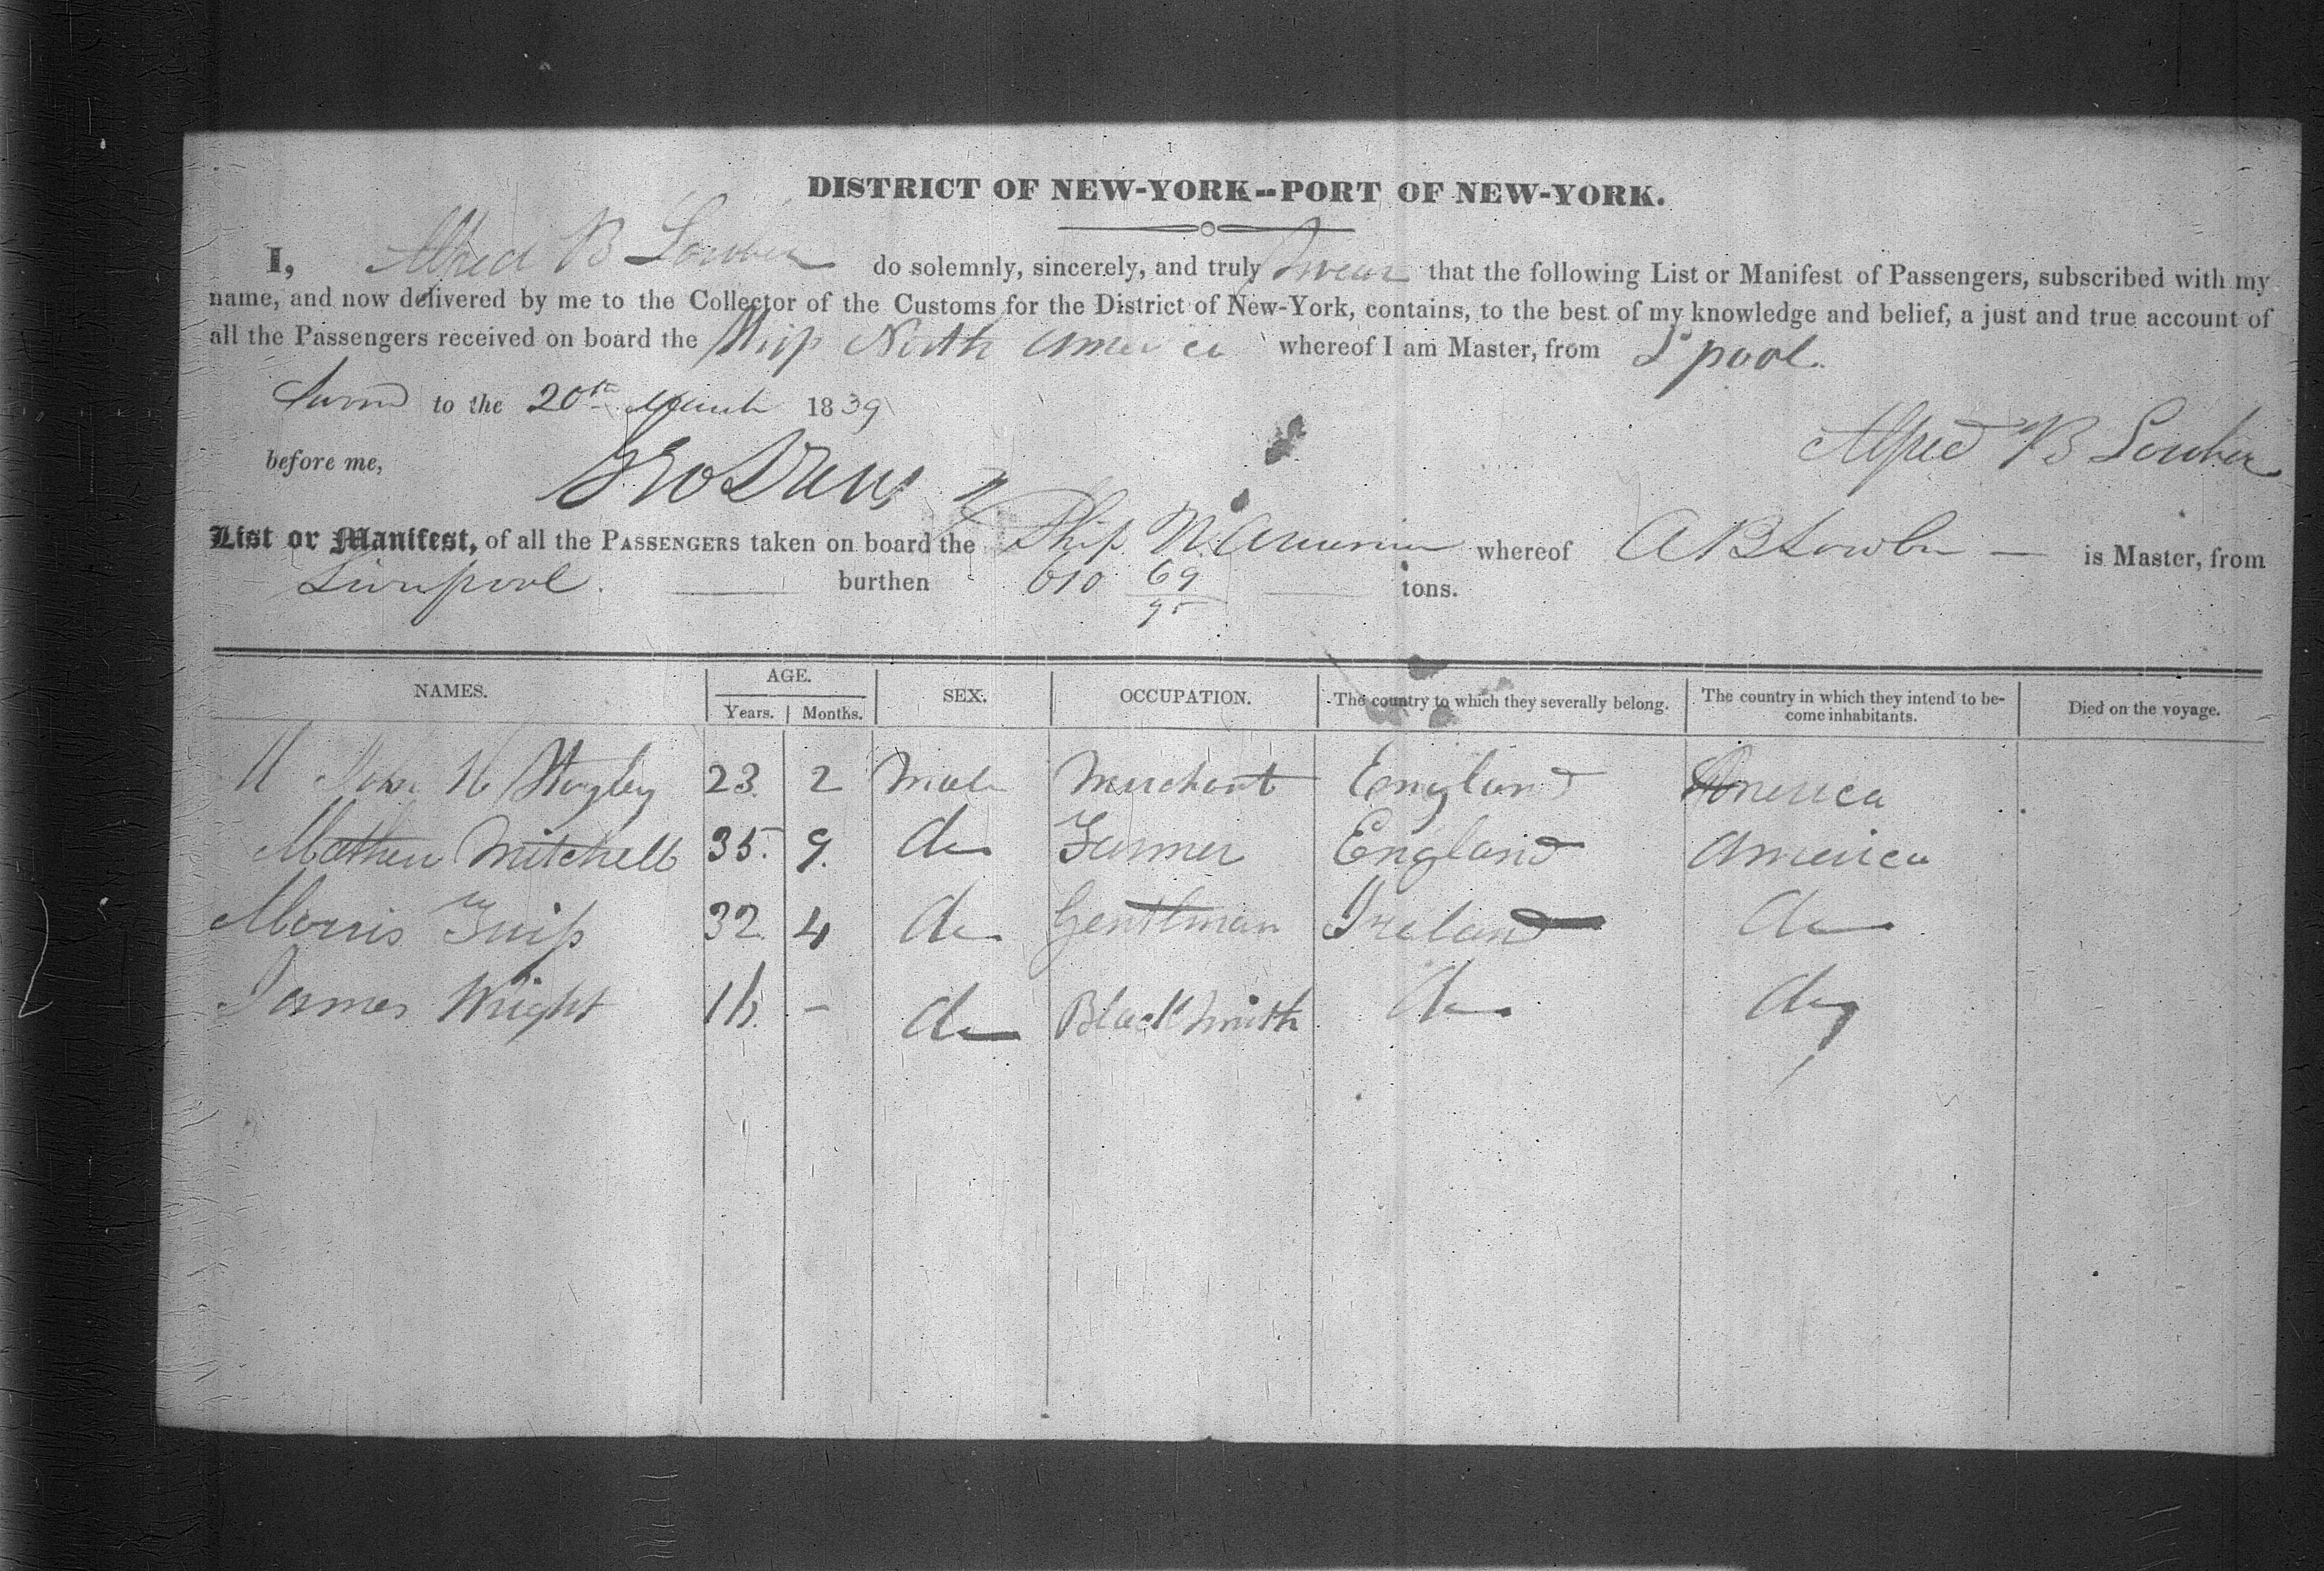 DISTRICT OF NEW-YORK--PORT OF NEW-YORK.
I, Alfred B Lowber do solemnly, sincerely, and truly Swear that the following List or Manifest of Passengers, subscribed with my
name, and now delivered by me to the Collector of the Customs for the District of New-York, contains, to the best of my knowledge and belief, a just and true account of
all the Passengers received on board the Ship North America whereof I am Master, from L'pool.
Sworn to the 20th March 1839
Alfred B Lowber
before me,
List or Manifest, of all the PASSENGERS taken on board the Ship N. America whereof A B Lowber — is Master, from
Liverpool. burthen 610 69/95 tons.
NAMES. AGE. SEX. OCCUPATION. The country to which they severally belong. The country in which they intend to be- Died on the voyage.
Years. Months. come inhabitants.
23 2 Male Merchant England America
Mathew Mitchell 35 9 do Farmer England America
Morris 32 4 do Gentlman Ireland do
James Wright - do Black Smith do do